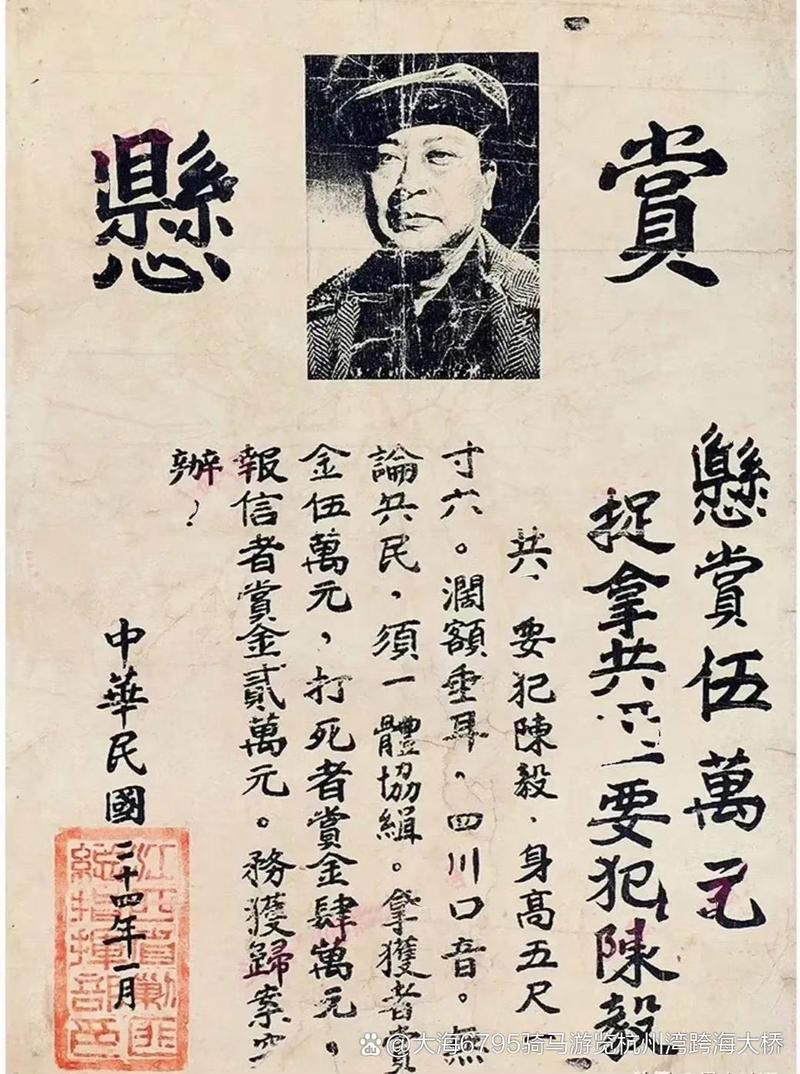 懸賞
懸賞伍萬元
捉拿共要犯陳毅
共、要犯陳毅,身高五尺
寸六。濶額垂耳。四川口音。無
論兵民,須一體協緝。拿獲者賞
金伍萬元,打死者賞金肆萬元。
報信者賞金貳萬元。務獲歸案
辦
中華民國二十四年一月
江西省勦匪
總指揮部印
@大海6795骑马游览杭州湾跨海大桥